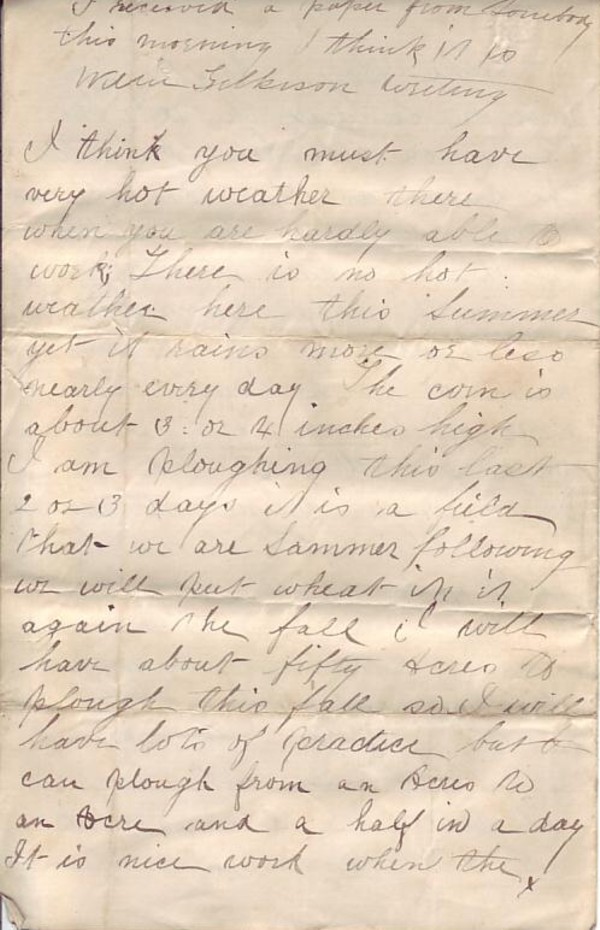 I received a paper from Somebody
this morning I think it is
Gilkison writing
I think you must have
very hot weather there
when you are hardly able to
work; There is no hot
weather here this Summer
yet it rains more or less
nearly every day The corn is
about 3 or 4 inches high
I am ploughing this last
2 or 3 days it is a field
that we are Sammer following
we will put wheat in it
again the fall i will
have about fifty Acres to
plough this fall so I will
have lots of practice but I
can plough from an Acres to
an Acre and a half in a day
It is nice work when the